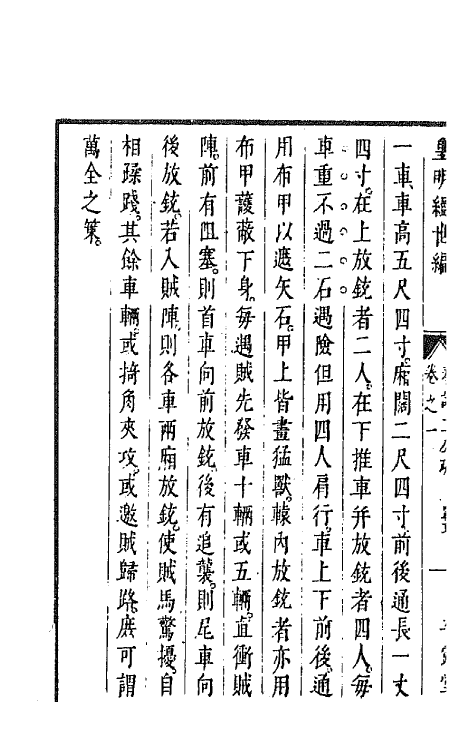 皇明經世編
卷之一
一車車高五尺四寸。廂闊二尺四寸。前後通長一丈
四寸。在上放銃者二人。在下推車幷放銃者四人。每
車重不過二石。遇險但用四人肩行。車上下前後。通
用布甲以遮矢石。甲上皆畫猛獸。轅內放銃者亦用
布甲護蔽下身。每遇賊先發車十輛或五輛。直衝賊
陣。前有阻塞。則首車向前放銃。後有追襲。則尾車向
後放銃。若入賊陣。則各車兩廂放銃。使賊馬驚擾。自
相蹂踐。其餘車輛。或掎角夾攻。或邀賊歸路。庶可謂
萬全之策。